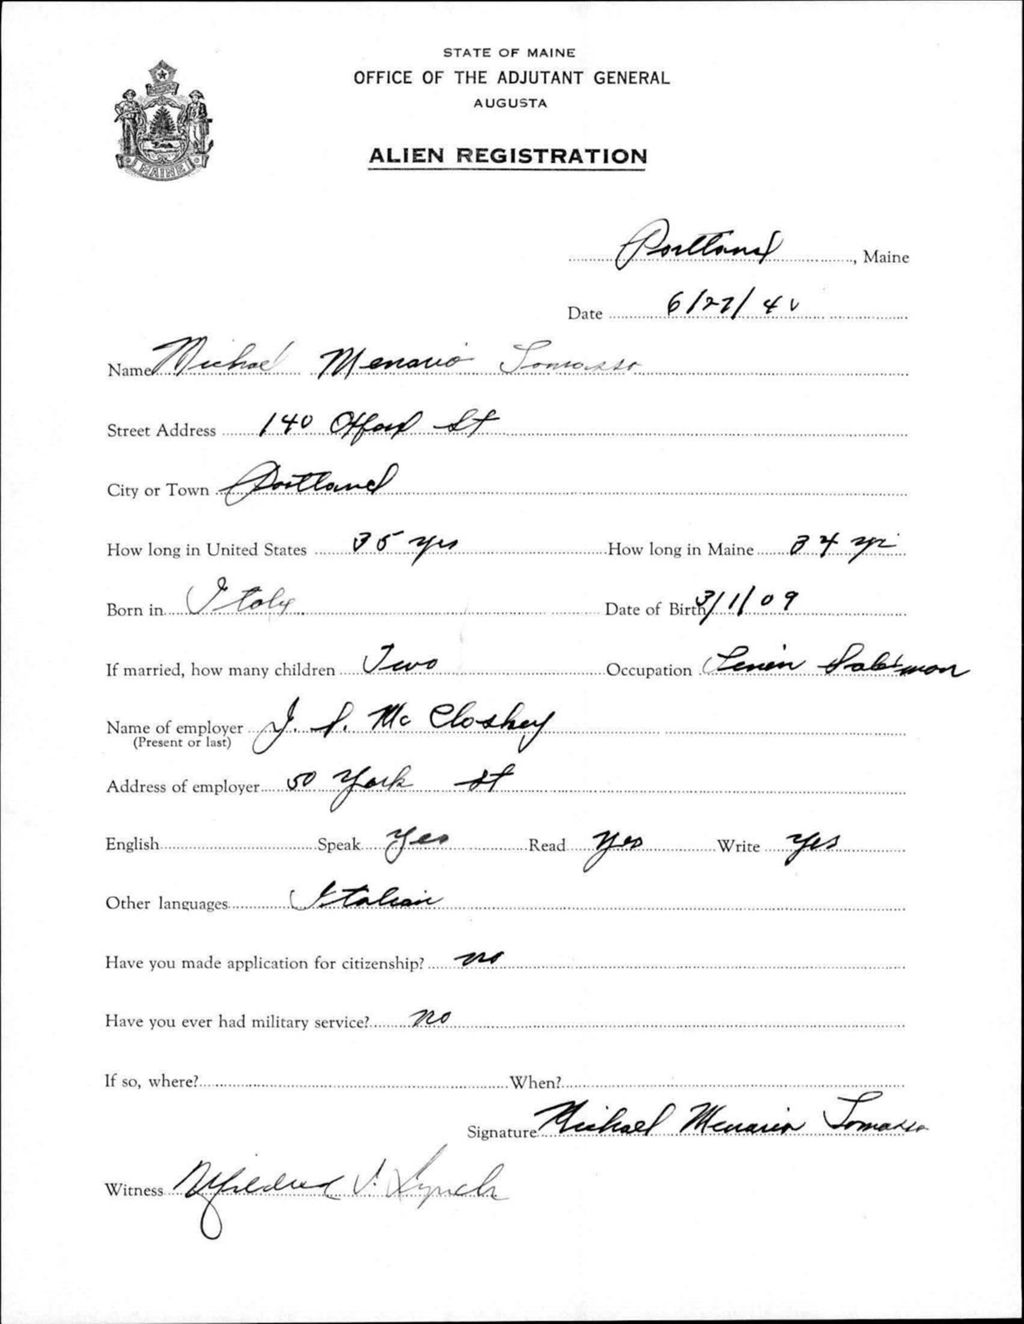 STATE OF MAINE
OFFICE OF THE ADJUTANT GENERAL
AUGUSTA
ALIEN REGISTRATION
MAINE
Portland, Maine
Date 6/27/40
Name Michael Menario Tomasso
Street Address 140 Oxford St
City or Town Portland
How long in United States 35 yrs How long in Maine 34 yr
Born in Italy Date of Birth 3/1/09
If married, how many children Two Occupation Salesmon
Name of employer J. McCloskey
(Present or last)
Address of employer 50 York St
English Speak Yes Read Yes Write Yes
Other languages Italian
Have you made application for citizenship? no
Have you ever had military service? no
If so, where? When?
Signature Michael Menario Tomasso
Witness Mildred Lynch